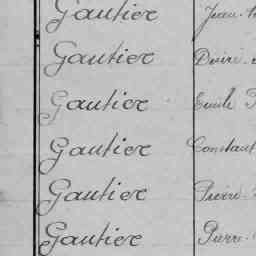 Gautier Jean
Gautier Désiré
Gautier Emile
Gautier Constant
Gautier Pierre
Gautier Pierre